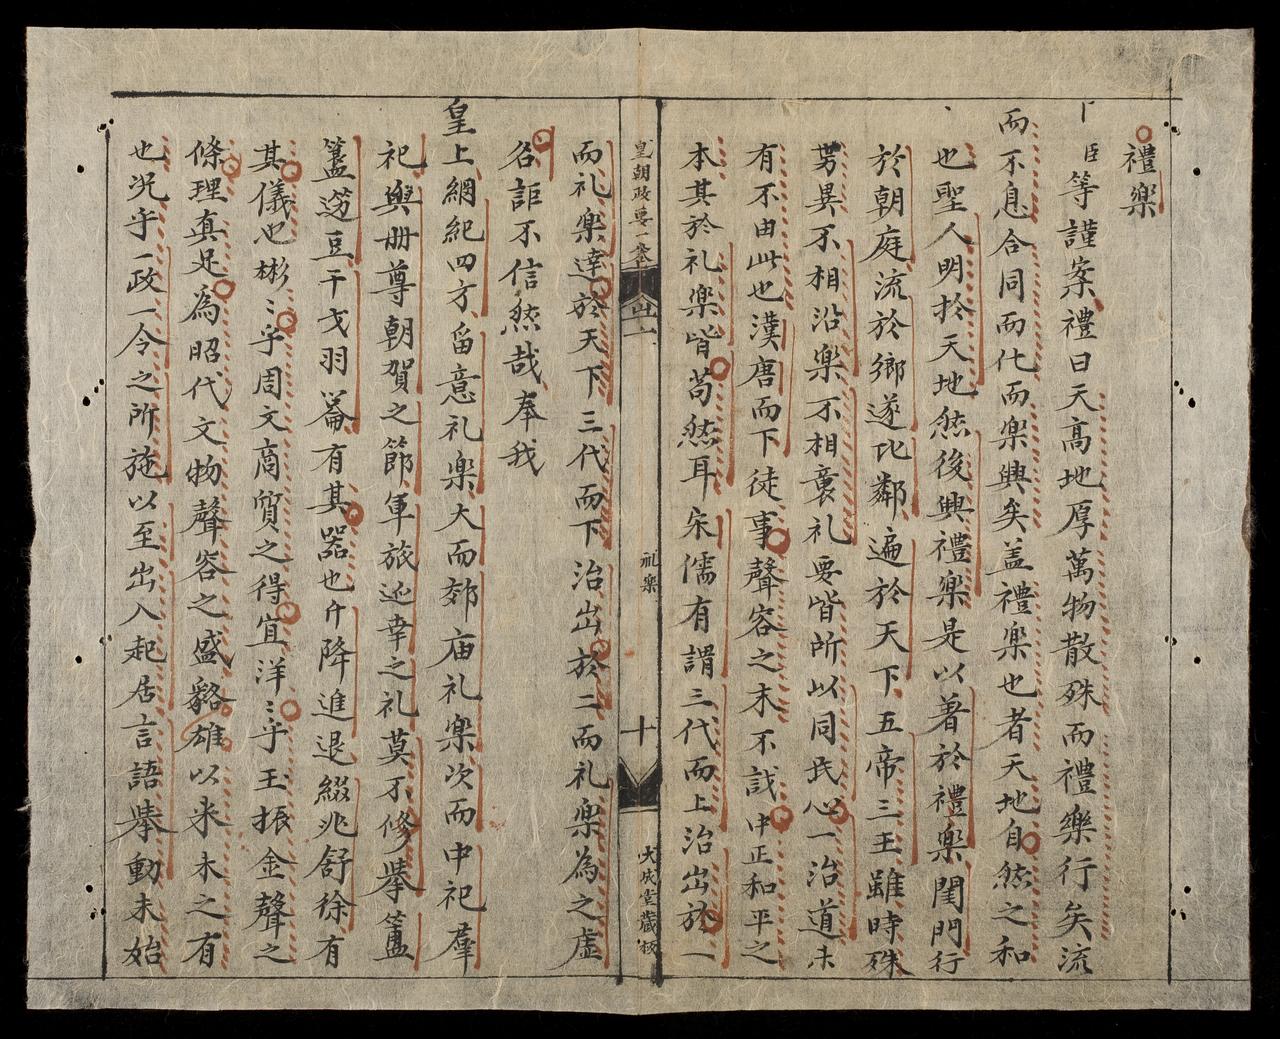 禮樂
臣等謹案禮曰天高地厚萬物散殊而禮樂行矣流
而不息合同而化而樂興矣盖禮樂也者天地自然之和
也聖人明於天地然後興禮樂是以著於禮樂閨門行
於朝庭流於鄉遂比鄰遍於天下五帝三王雖時殊
势異不相沿樂不相襄礼要皆所以同民心一治道未
有不由此也漢唐而下徒事聲容之末不誠中正和平之
本其於礼樂皆苟然耳宋儒有謂三代而上治出於一
皇朝政要一卷
礼樂
十
大成堂藏板
而礼樂達於天下三代而下治出於二而礼樂為之虛
名詎不信然哉奉我
皇上綱紀四方畱意礼樂大而郊庙礼樂次而中祀羣
祀與冊尊朝賀之節軍旅巡幸之礼莫不修举簠
簋籩豆干戈羽籥有其器也升降進退綴兆舒徐有
其儀也彬〻乎周文商質之得宜洋〻乎玉振金聲之
條理真足為昭代文物聲容之盛貉雄以来未之有
也况乎一政一令之所施以至出入起居言語举動未始